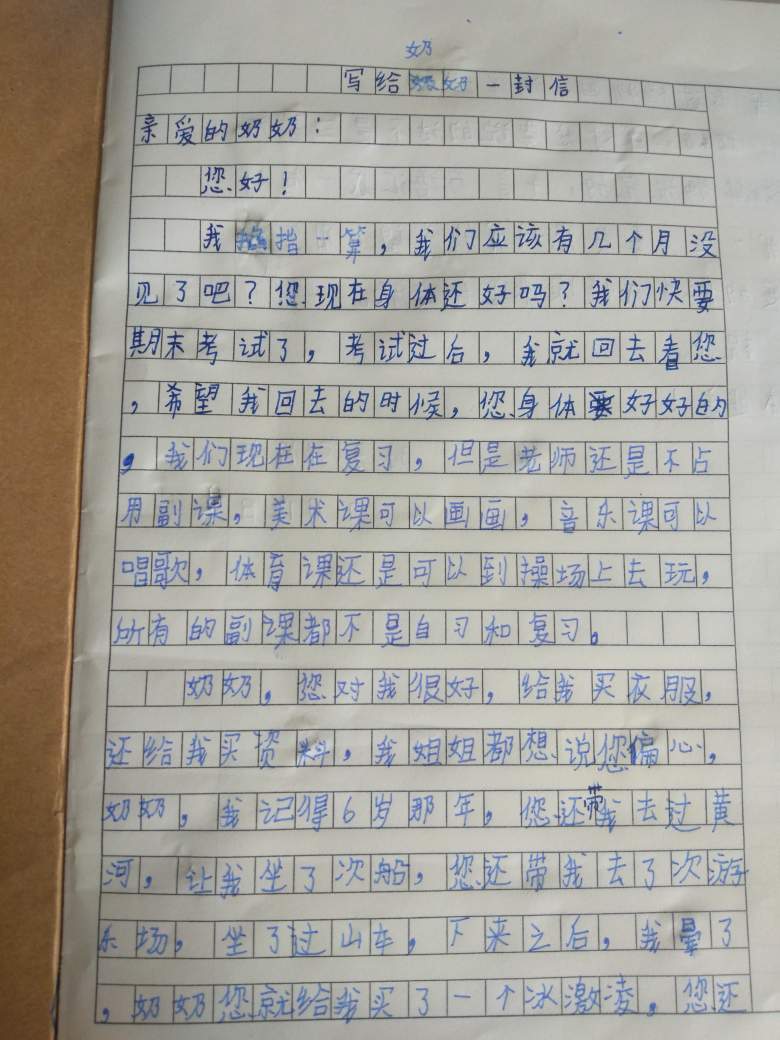 奶
写给奶奶一封信
亲爱的奶奶：
您好！
我掐指一算，我们应该有几个月没
见了吧？您现在身体还好吗？我们快要
期末考试了，考试过后，我就回去看您
，希望我回去的时候，您身体要好好的
。我们现在在复习，但是老师还是不占
用副课，美术课可以画画，音乐课可以
唱歌，体育课还是可以到操场上去玩，
所有的副课都不是自习和复习。
奶奶，您对我很好，给我买衣服，
还给我买资料，我姐姐都想说您偏心，
奶奶，我记得6岁那年，您还带我去过黄
河，让我坐了次船，您还带我去了次游
乐场，坐了过山车，下来之后，我晕了
，奶奶您就给我买了一个冰激凌，您还